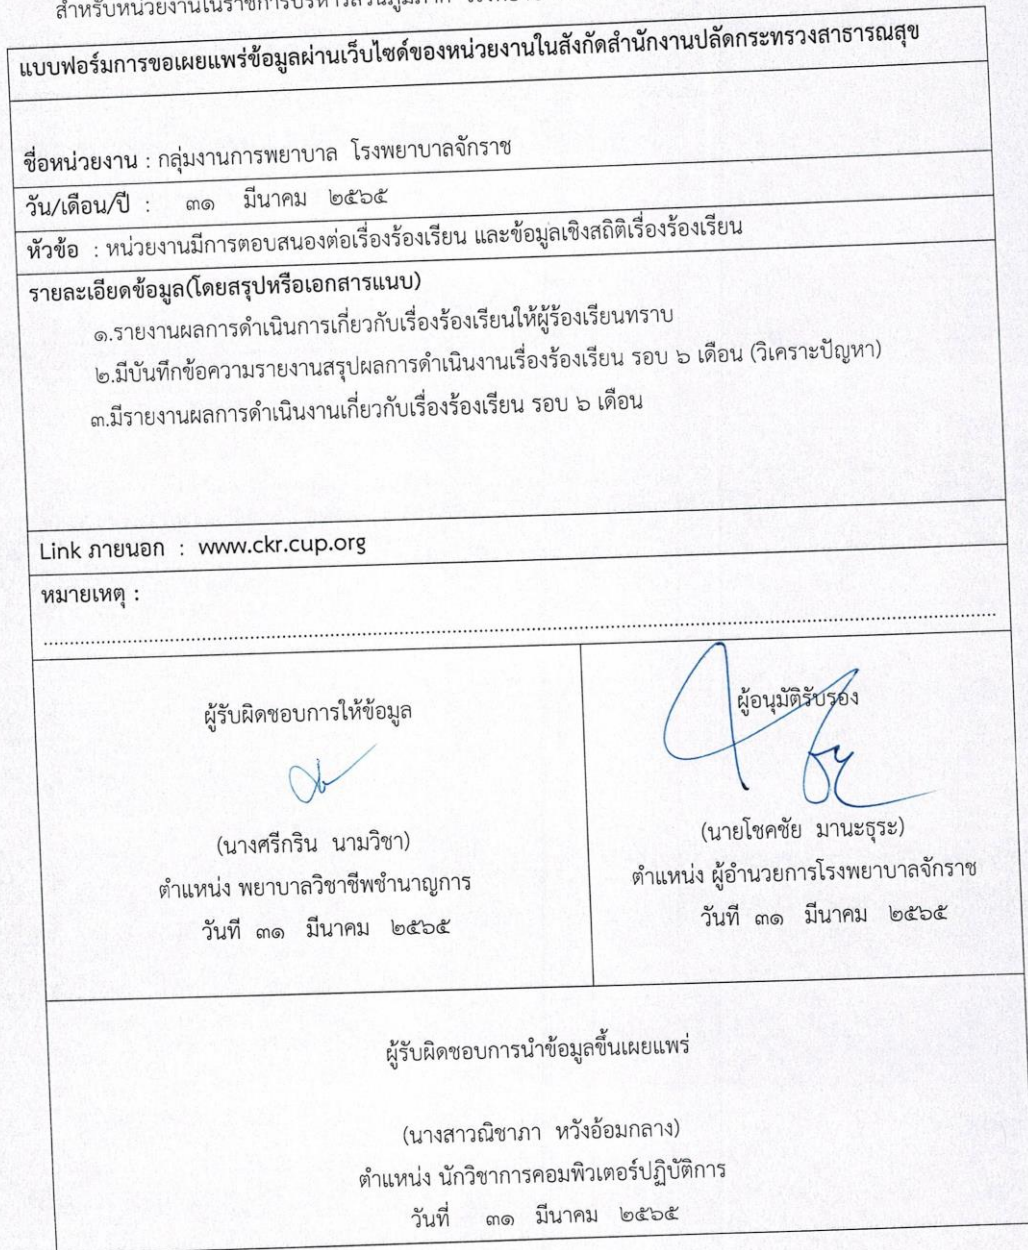 สำหรับหน่วยงานในราชการบริหารส่วนภูมิภาค
แบบฟอร์มการขอเผยแพร่ข้อมูลผ่านเว็บไซต์ของหน่วยงานในสังกัดสำนักงานปลัดกระทรวงสาธารณสุข
ชื่อหน่วยงาน : กลุ่มงานการพยาบาล โรงพยาบาลจักราช
วัน/เดือน/ปี : ๓๑ มีนาคม ๒๕๖๕
หัวข้อ : หน่วยงานมีการตอบสนองต่อเรื่องร้องเรียน และข้อมูลเชิงสถิติเรื่องร้องเรียน
รายละเอียดข้อมูล(โดยสรุปหรือเอกสารแนบ)
๑.รายงานผลการดำเนินการเกี่ยวกับเรื่องร้องเรียนให้ผู้ร้องเรียนทราบ
๒.มีบันทึกข้อความรายงานสรุปผลการดำเนินงานเรื่องร้องเรียน รอบ ๖ เดือน (วิเคราะปัญหา)
๓.มีรายงานผลการดำเนินงานเกี่ยวกับเรื่องร้องเรียน รอบ ๖ เดือน
Link ภายนอก : www.ckr.cup.org
หมายเหตุ :
ผู้รับผิดชอบการให้ข้อมูล
(นางศรีกริน นามวิชา)
ตำแหน่ง พยาบาลวิชาชีพชำนาญการ
วันที่ ๓๑ มีนาคม ๒๕๖๕
ผู้อนุมัติรับรอง
(นายโชคชัย มานะธุระ)
ตำแหน่ง ผู้อำนวยการโรงพยาบาลจักราช
วันที่ ๓๑ มีนาคม ๒๕๖๕
ผู้รับผิดชอบการนำข้อมูลขึ้นเผยแพร่
(นางสาวณิชาภา หวังอ้อมกลาง)
ตำแหน่ง นักวิชาการคอมพิวเตอร์ปฏิบัติการ
วันที่ ๓๑ มีนาคม ๒๕๖๕